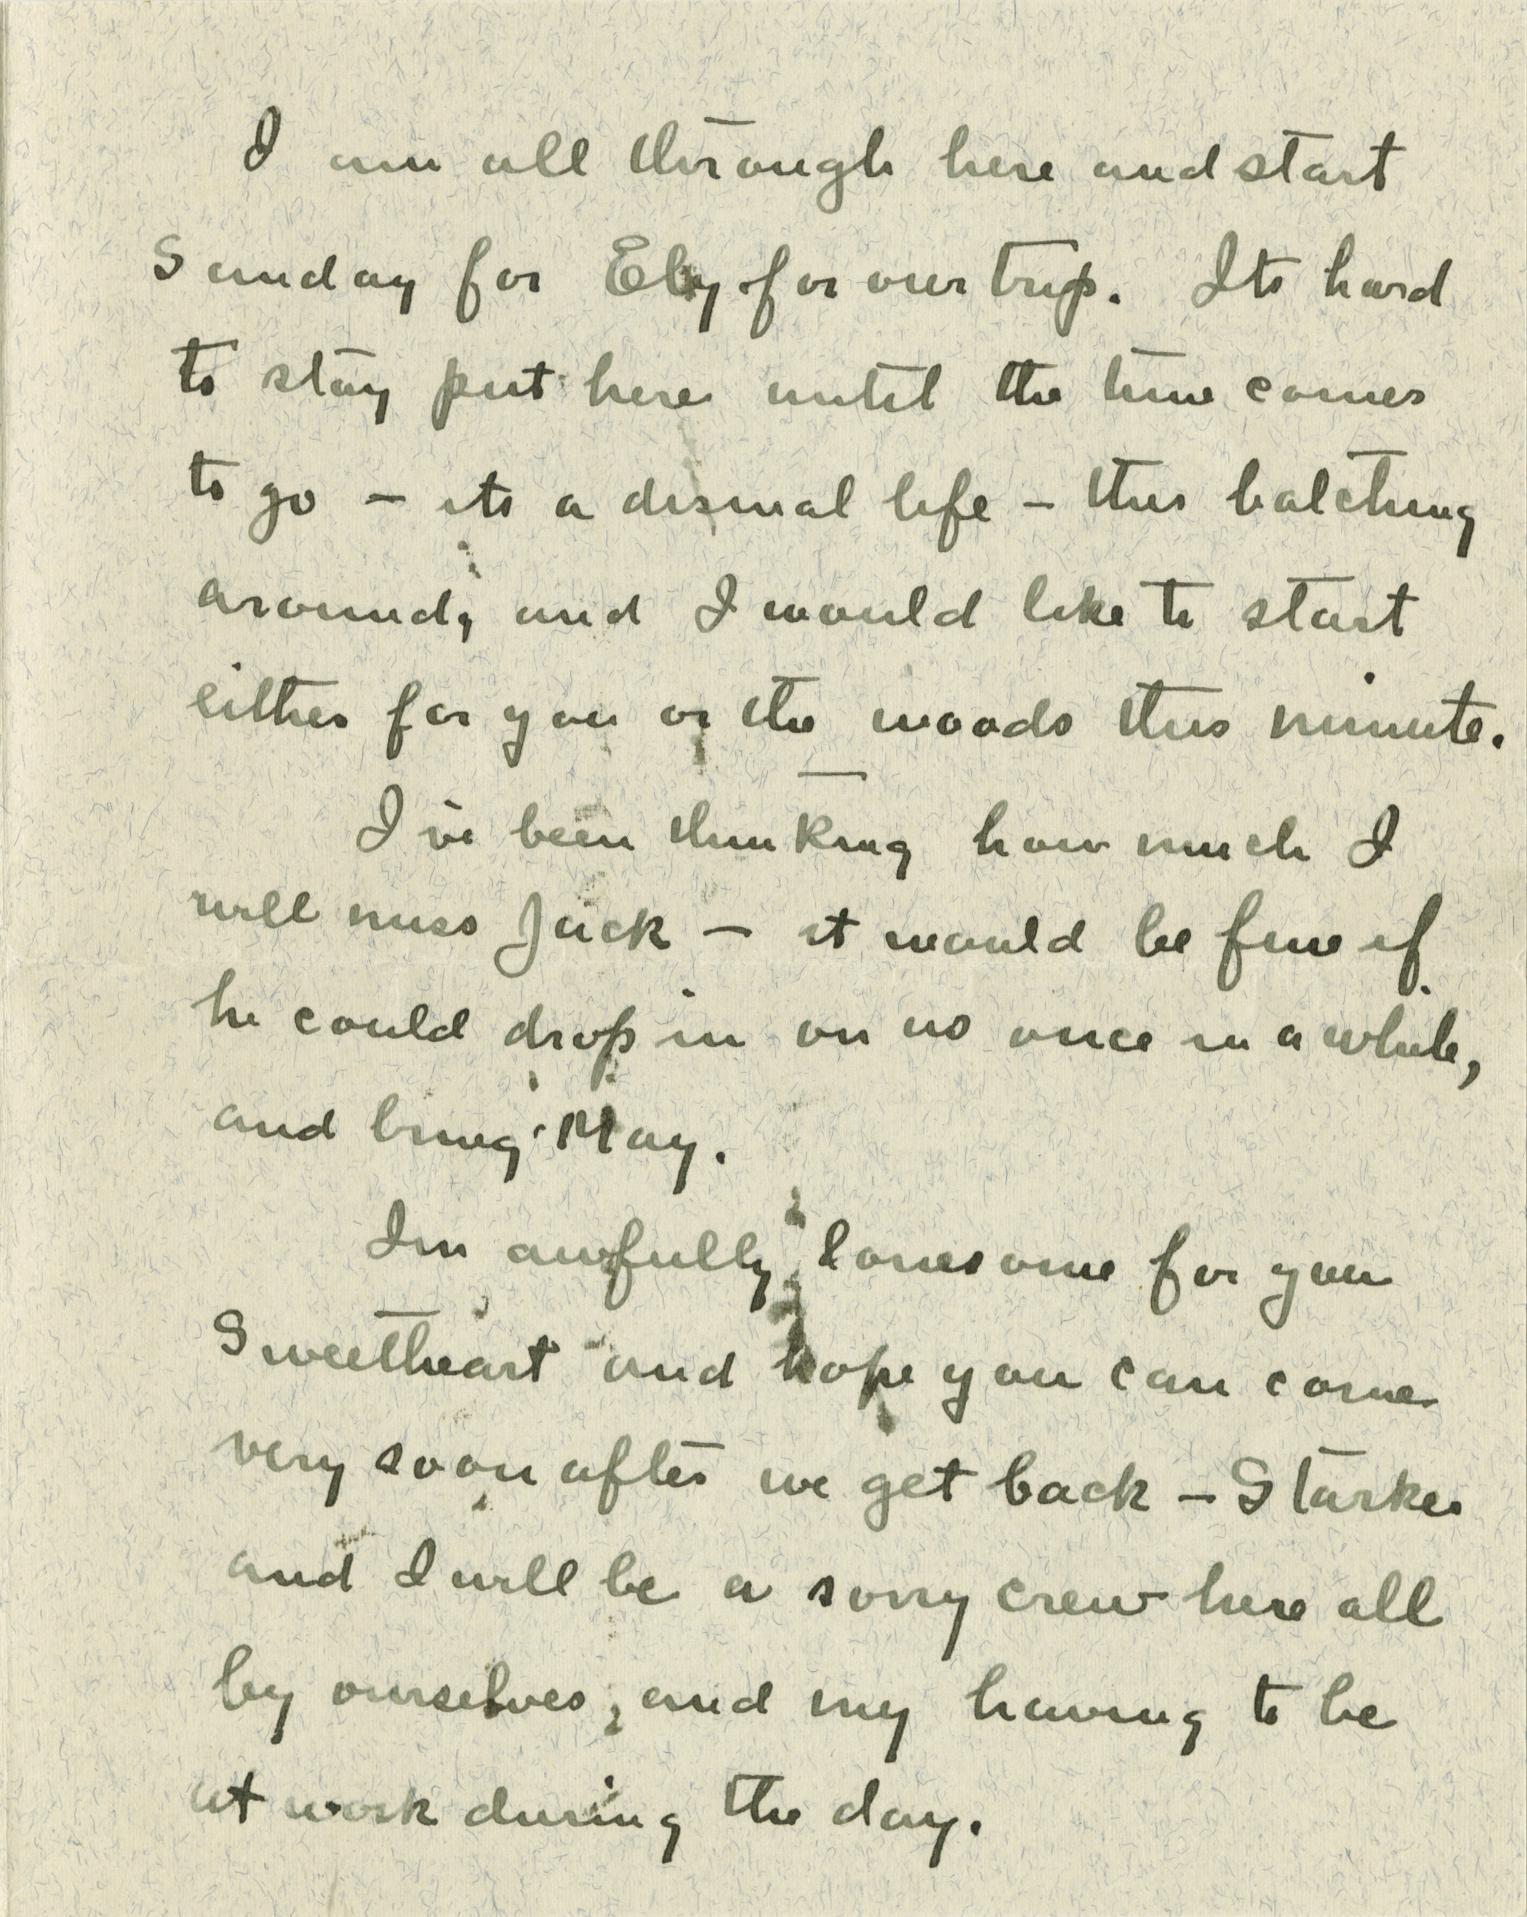 I am all through here and start
Sunday for Ely for our trip. Its hard
to stay put here until the time comes
to go – its a dismal life – this batching
around, and I would like to start
either for you or the woods this minute.
I've been thinking how much I
will miss Jack – it would be fine if
he could drop in on us once in a while,
and bring May.
Im awfully lonesome for you
Sweetheart and hope you can come
very soon after we get back – Starker
and I will be a sorry crew here all
by ourselves, and my having to be
at work during the day.